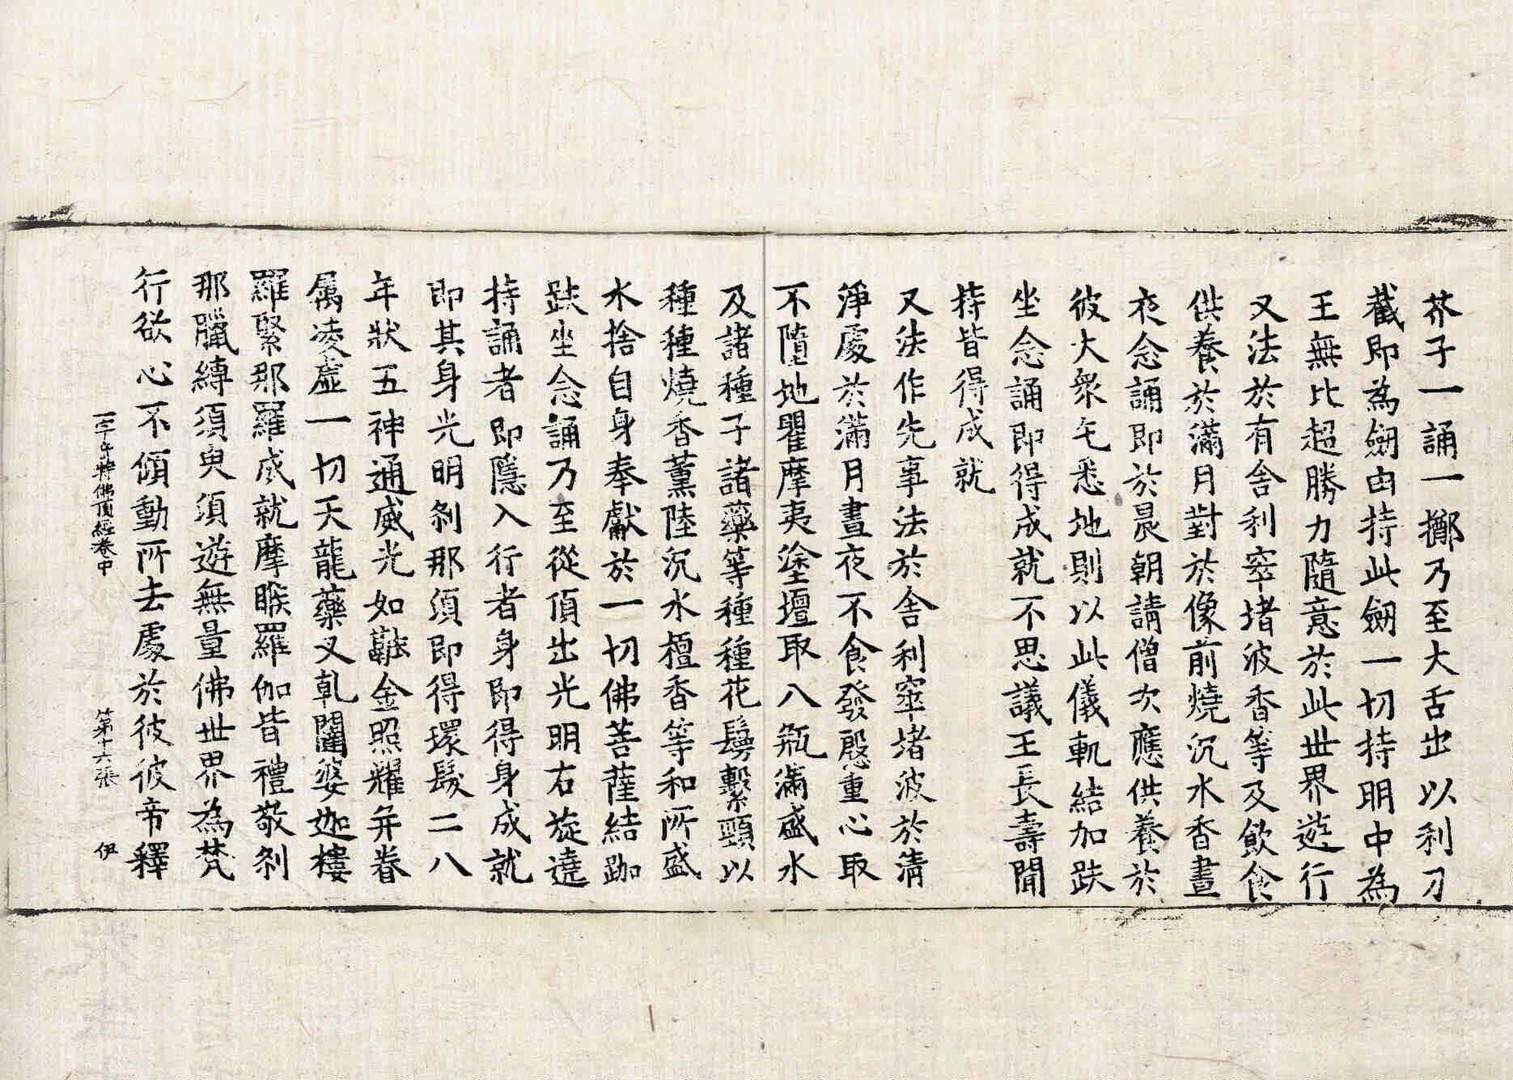 芥子一誦一擲乃至大舌出以利刀
截即為劒由持此劒一切持明中為
王無比超勝力隨意於此世界遊行
又法於有舍利窣堵波香等及飲食
供養於滿月對於像前燒沉水香晝
夜念誦即於晨朝請僧次應供養於
彼大衆乞悉地則以此儀軌結加趺
坐念誦即得成就不思議王長壽聞
持皆得成就
又法作先事法於舍利窣堵波於清
淨處於滿月晝夜不食發慇重心取
不墮地瞿摩夷塗壇取八瓶滿盛水
及諸種子諸藥等種種花鬘繫頸以
種種燒香薰陸沉水檀香等和所盛
水捨自身奉獻於一切佛菩薩結跏
趺坐念誦乃至從頂出光明右旋遶
持誦者即隱入行者身即得身成就
即其身光明刹那須即得環髮二八
年狀五神通威光如融金照耀并眷
属凌虛一切天龍藥叉乹闥婆迦樓
羅緊那羅成就摩睺羅伽皆禮敬刹
那臘縛須臾須遊無量佛世界為梵
行欲心不傾動所去處於彼彼帝釋
一字竒特佛頂經卷中 第十六張 伊